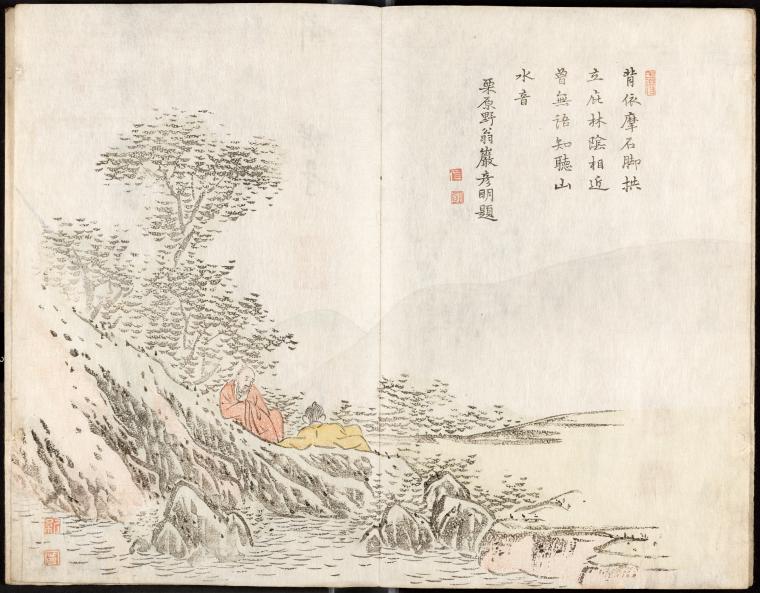 背依摩石脚拱
立庇林陰相近
曾無語知聽山
水音
栗原野翁巖彦明題